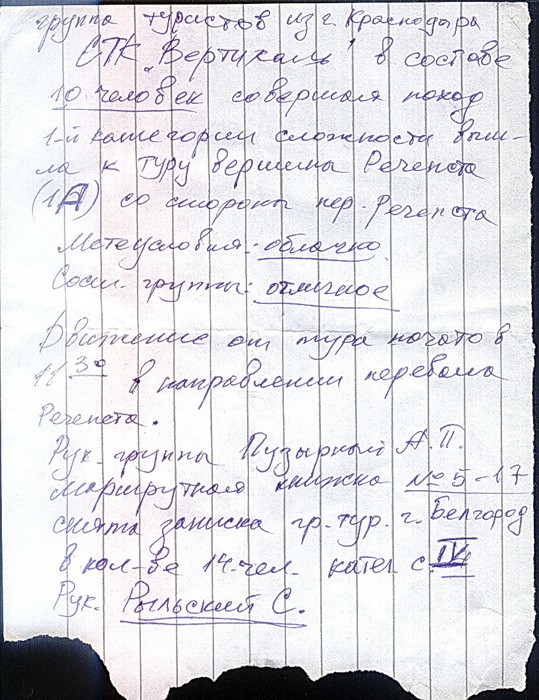 группа туристов из г. Краснодара
СТК „Вертикаль" в составе
10 человек совершая поход
1-й категории сложности выш-
ла к туру вершины Речепста
(1А) со стороны пер. Речепста
Метеусловия: облачно
Сост. группы: отличное
Движение от тура начато в
11 30 в направлении перевала
Речепста.
Рук. группы Пузырный А.П.
Маршрутная книжка № 5-17
снята записка гр. тур. г. Белгород
в кол-ве 14 чел. катег. с. IV
Рук. Рыльский С.